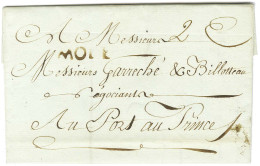 A Messieurs 2
MOLE
Messieurs Garreché & Billotteau
Négociants
Au Port au Prince